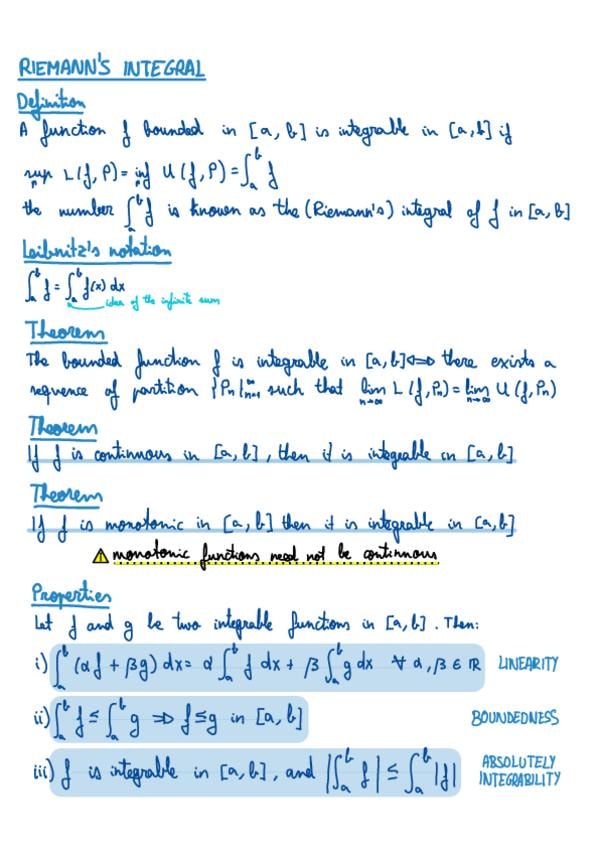 RIEMANN'S INTEGRAL
Definition
A function f bounded in [a, b] is integrable in [a, b] if
sup_P L(f, P) = inf_P U(f, P) = ∫_a^b f
the number ∫_a^b f is known as the (Riemann's) integral of f in [a, b]
Leibnitz's notation
∫_a^b f = ∫_a^b f(x) dx
idea of the infinite sum
Theorem
The bounded function f is integrable in [a, b] ⟺ there exists a
sequence of partition {Pn}_{n=1}^∞ such that lim_{n→∞} L(f, Pn) = lim_{n→∞} U(f, Pn)
Theorem
If f is continuous in [a, b], then it is integrable in [a, b]
Theorem
If f is monotonic in [a, b] then it is integrable in [a, b]
⚠ monotonic functions need not be continuous
Properties
Let f and g be two integrable functions in [a, b]. Then:
i) ∫_a^b (αf + βg) dx = α ∫_a^b f dx + β ∫_a^b g dx ∀ α, β ∈ ℝ LINEARITY
ii) ∫_a^b f ≤ ∫_a^b g ⇒ f ≤ g in [a, b] BOUNDEDNESS
iii) f is integrable in [a, b], and |∫_a^b f| ≤ ∫_a^b |f| ABSOLUTELY
INTEGRABILITY